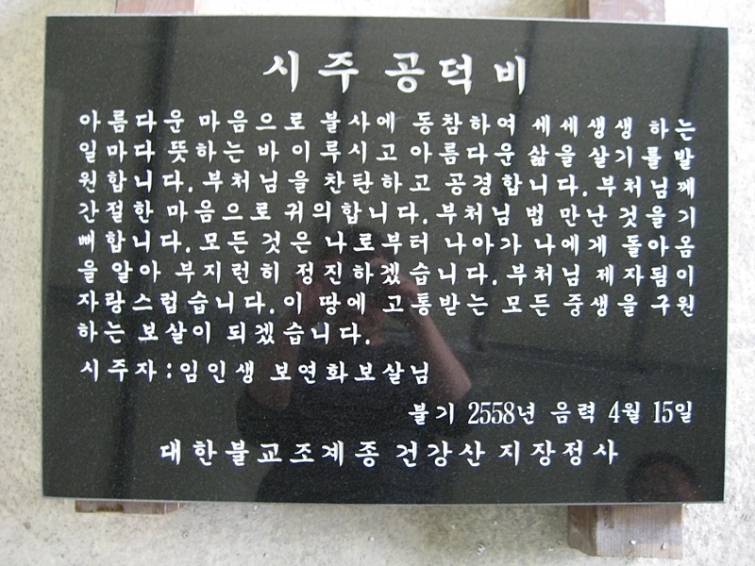 시주 공덕비
아름다운 마음으로 불사에 동참하여 세세생생 하는
일마다 뜻하는 바 이루시고 아름다운 삶을 살기를 발
원합니다. 부처님을 찬탄하고 공경합니다. 부처님께
간절한 마음으로 귀의합니다. 부처님 법 만난 것을 기
뻐합니다. 모든 것은 나로부터 나아가 나에게 돌아옴
을 알아 부지런히 정진하겠습니다. 부처님 제자됨이
자랑스럽습니다. 이 땅에 고통받는 모든 중생을 구원
하는 보살이 되겠습니다.
시주자 : 임인생 보연화보살님
불기 2558년 음력 4월 15일
대한불교조계종 건강산 지장정사